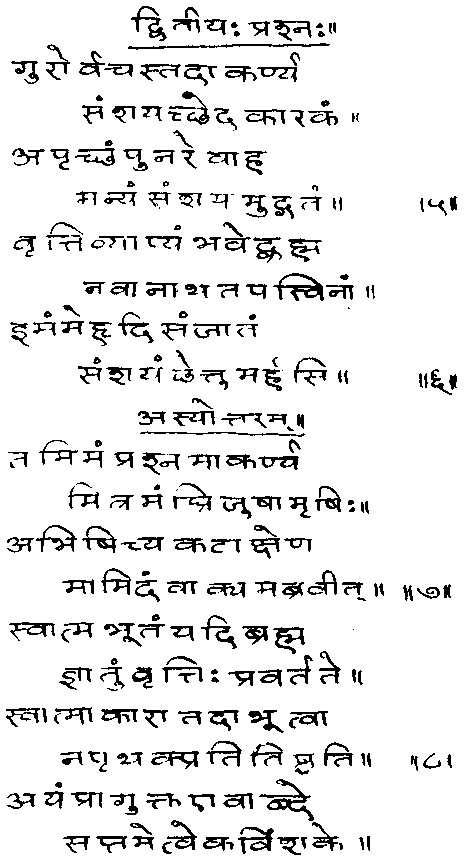 द्वितीयः प्रश्नः॥
गुरोर्वचस्तदाकर्ण्य
संशयच्छेदकारकं॥
अपृच्छंपुनरेवाह
मन्यं संशयमुद्गतं॥ ॥५॥
वृत्तिव्याप्यंभवेद्ब्रह्म
नवानाथतपस्विनां॥
इमंमेहृदिसंजातं
संशयंछेत्तुमर्हसि॥ ॥६॥
अस्योत्तरम्॥
तमिमंप्रश्नमाकर्ण्य
मित्रमंघ्रिजुषामृषिः॥
अभिषिच्यकटाक्षेण
मामिदंवाक्यमब्रवीत्॥ ॥७॥
स्वात्मभूतंयदिब्रह्म
ज्ञातुंवृत्तिःप्रवर्तते॥
स्वात्माकारातदाभूत्वा
नपृथक्प्रतितिष्ठति॥ ॥८॥
अयंप्रागुक्तएवाब्दे
सप्तमेत्वेकविंशके॥